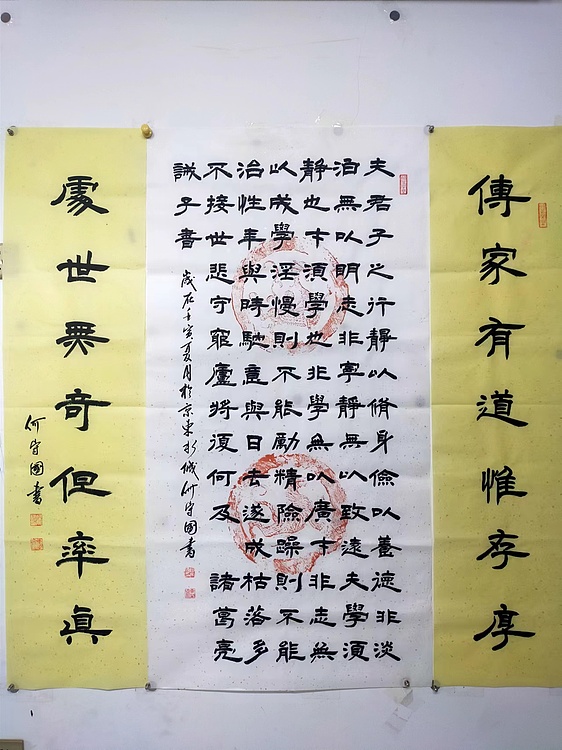 傳家有道惟存厚
夫君子之行靜以脩身儉以養德非淡
泊無以明志非寧靜無以致遠夫學須
靜也才須學也非學無以廣才非志無
以成學淫慢則不能勵精險躁則不能
治性年與時馳意與日去遂成枯落多
不接世悲守窮廬將復何及 諸葛亮
誡子書
歲在壬寅夏月於京東新城何守國書
處世無奇但率真
何守國書